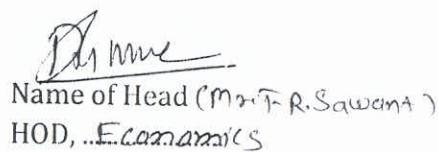 Name of Head (Mr. T. R. Sawant)
HOD, ..Economics